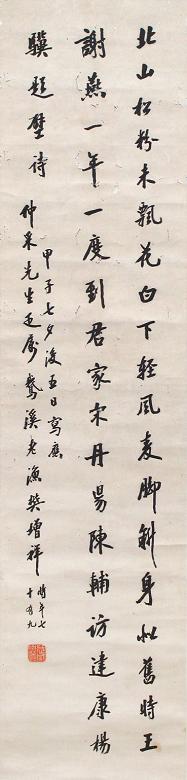 北山松粉未飄花白下輕風麦脚斜身似舊時王
謝燕一年一度到君家宋丹昜陳輔訪建康楊
驥題壁詩
甲子七夕後五日寫應
仲采先生正屬鰲溪老漁樊增祥
時年七
十有九